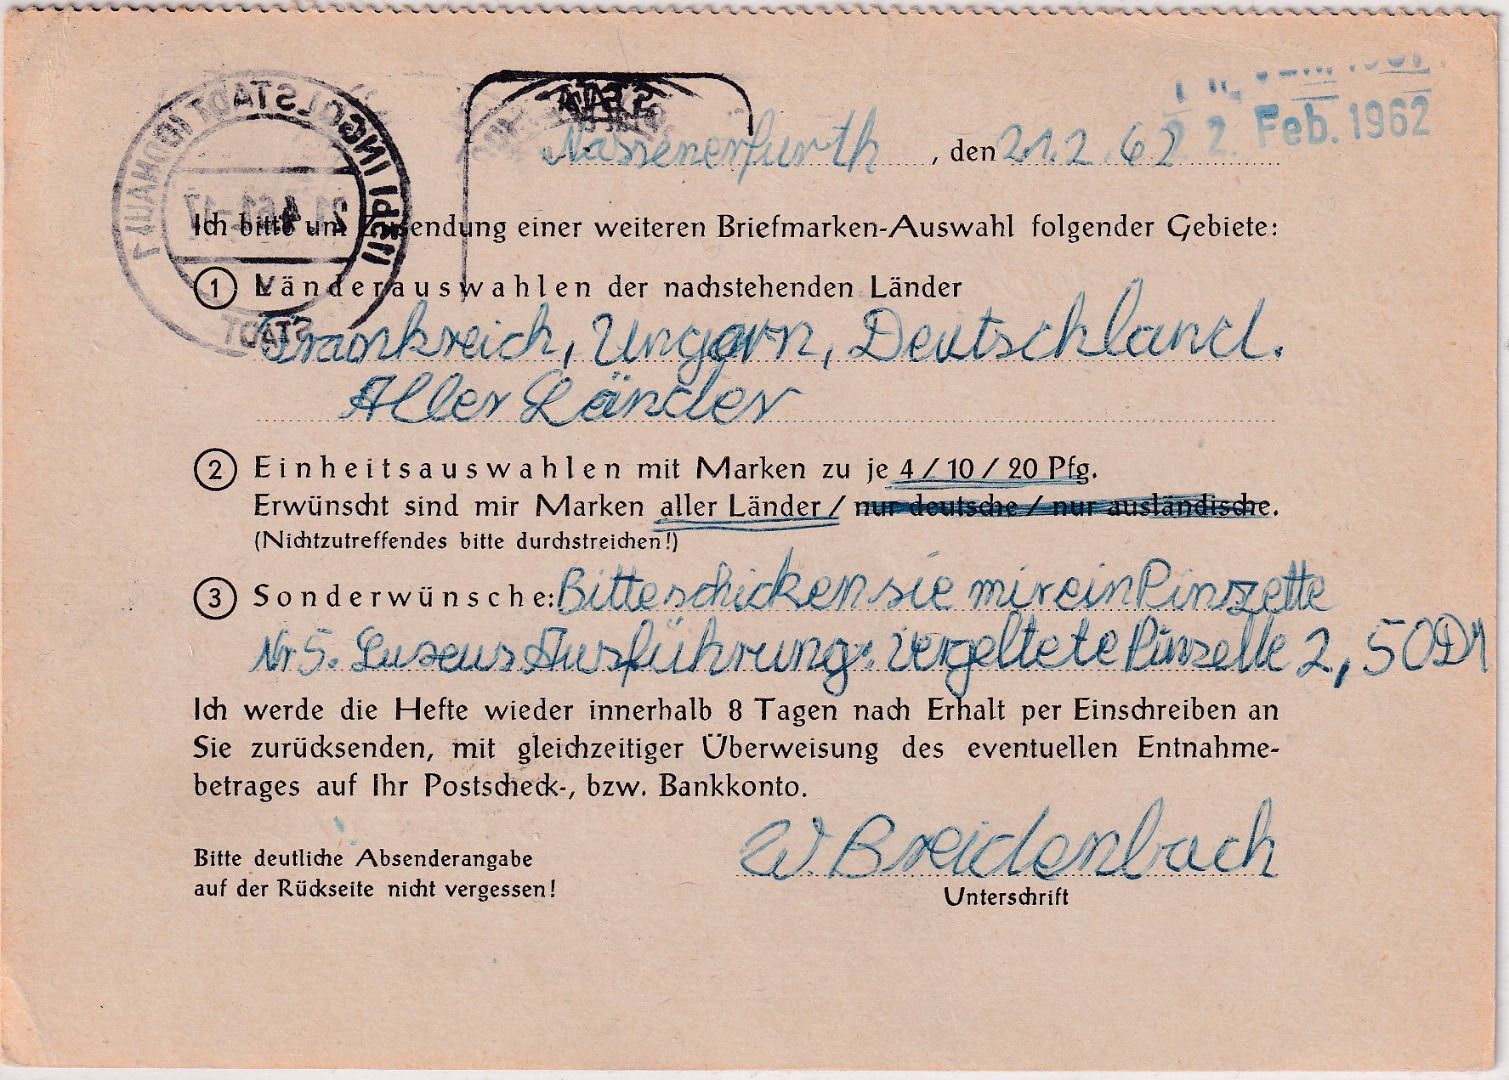 Nassenerfurth, den 21.2.62
22. Feb. 1962
Ich bitte um Zusendung einer weiteren Briefmarken-Auswahl folgender Gebiete:
1 Länderauswahlen der nachstehenden Länder
Frankreich, Ungarn, Deutschland.
Aller Länder
2 Einheitsauswahlen mit Marken zu je 4 / 10 / 20 Pfg.
Erwünscht sind mir Marken aller Länder / nur deutsche / nur ausländische.
(Nichtzutreffendes bitte durchstreichen!)
3 Sonderwünsche: Bitte schicken sie mir ein Pinzette
Nr 5. Luxeus Ausführung: Vergeltete Pinzelle 2,50 DM
Ich werde die Hefte wieder innerhalb 8 Tagen nach Erhalt per Einschreiben an
Sie zurücksenden, mit gleichzeitiger Überweisung des eventuellen Entnahme-
betrages auf Ihr Postscheck-, bzw. Bankkonto.
W. Breidenbach
Bitte deutliche Absenderangabe
auf der Rückseite nicht vergessen!
Unterschrift
INGOLSTADT
STADT